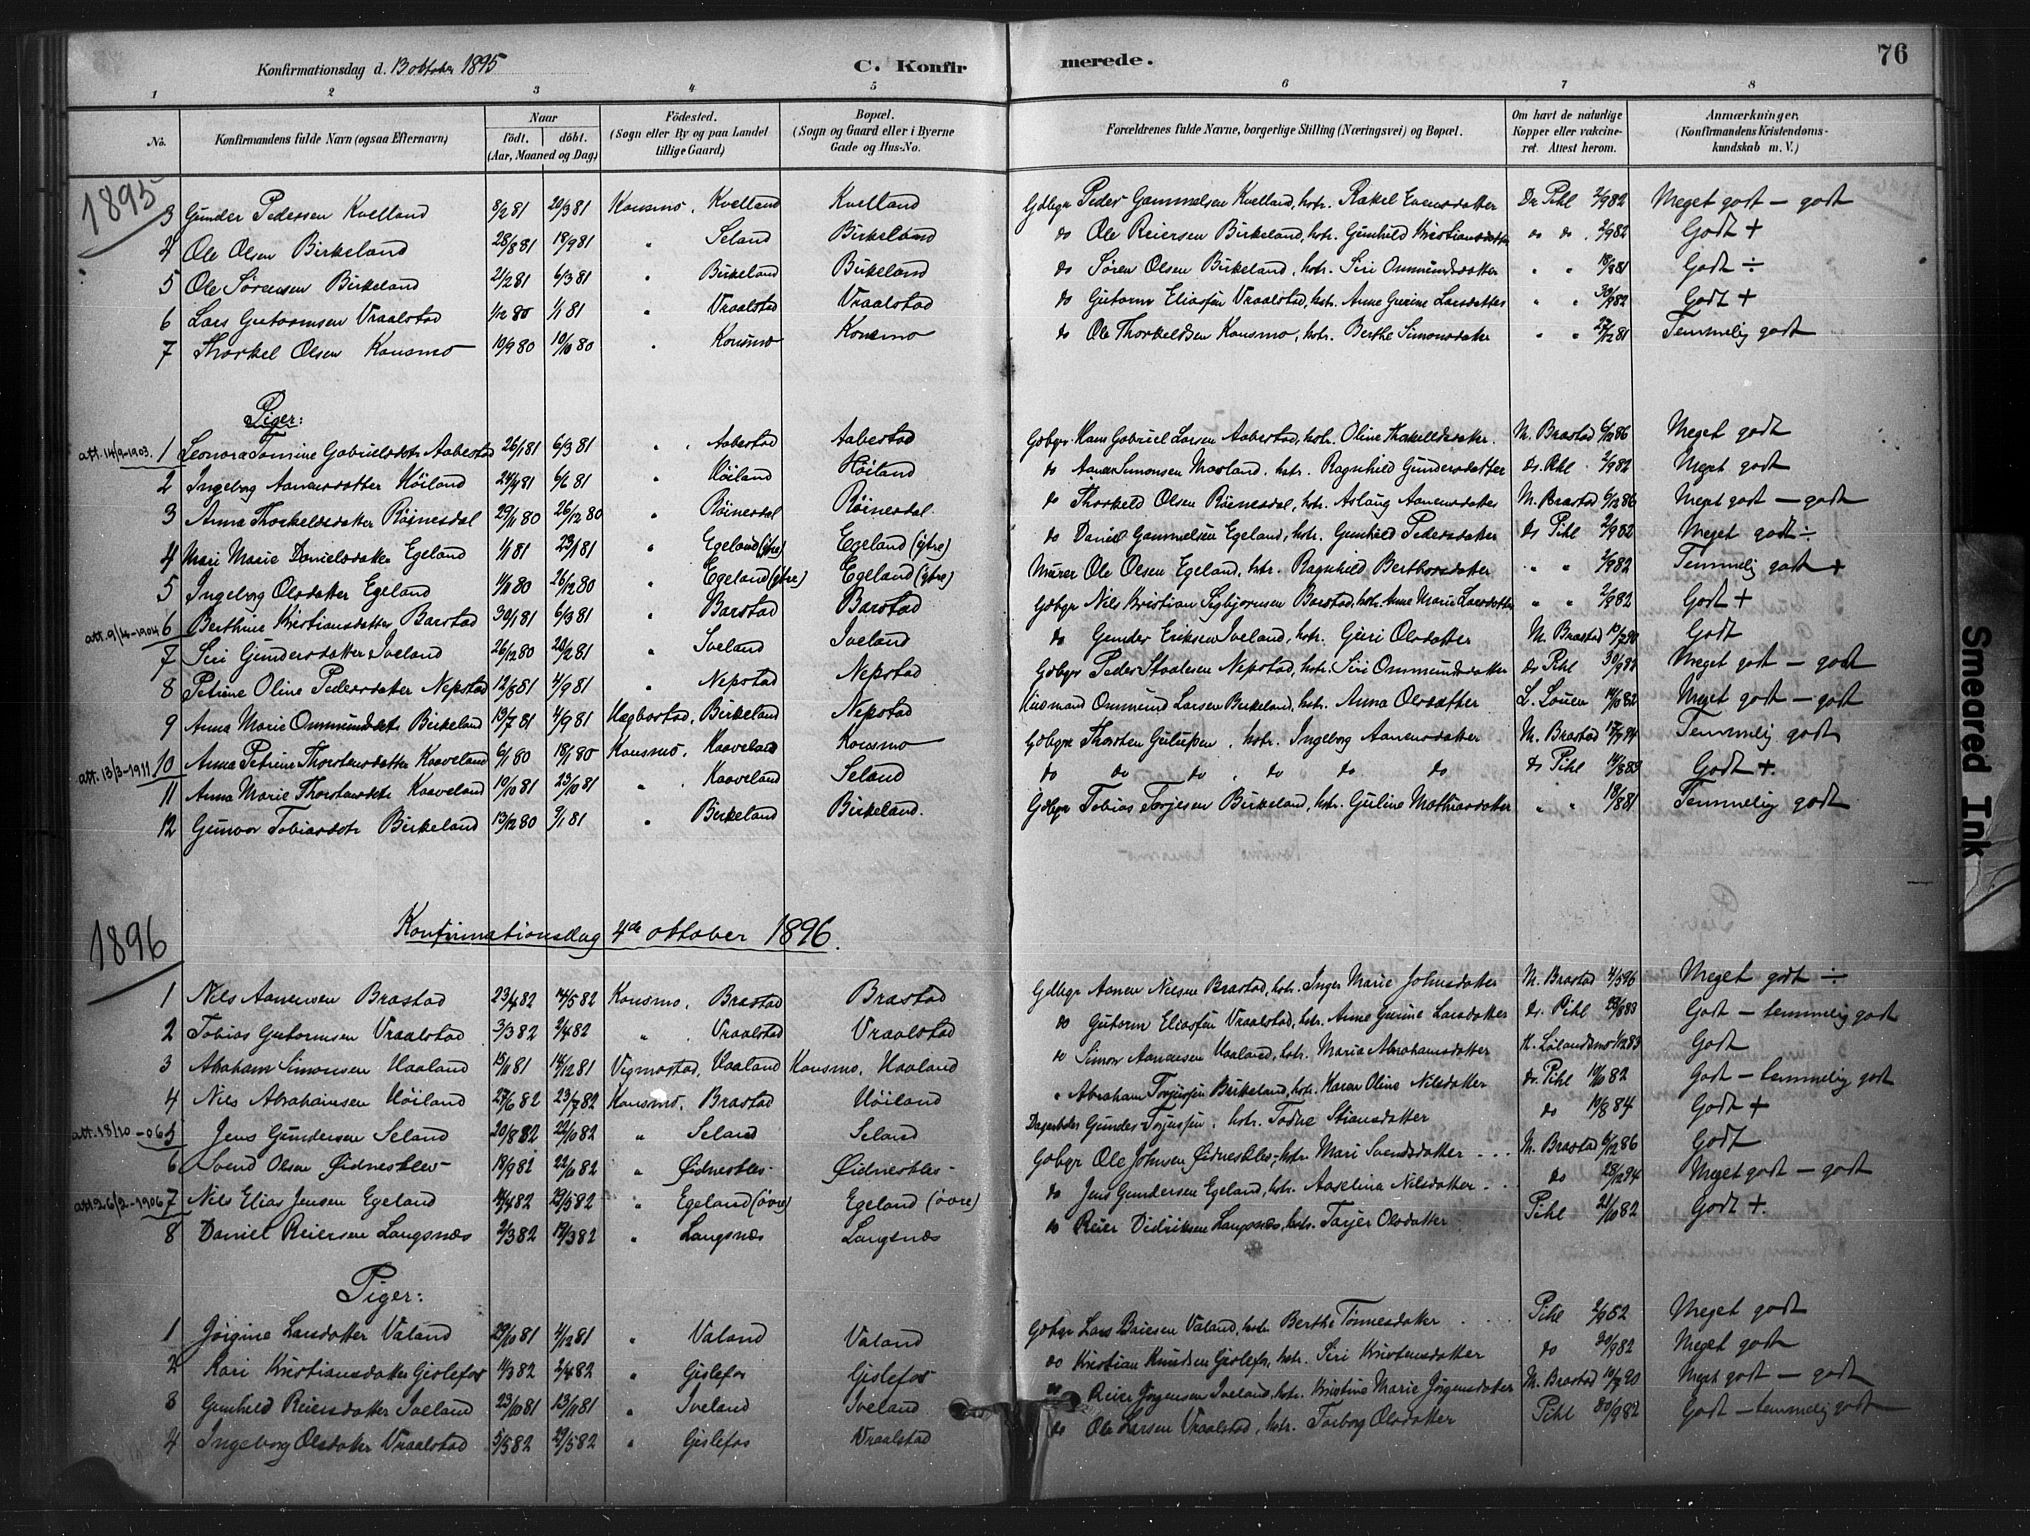 76
Konfirmationsdag d. 13 oktober 1895
C. Konfirmerede.
1 2 3 4 5 6 7 8
No. Konfirmandens fulde Navn (ogsaa Efternavn) Naar født. døbt. (Aar, Maaned og Dag) Fødested. (Sogn eller By og paa Landet tillige Gaard) Bopæl. (Sogn og Gaard eller i Byerne Gade og Hus-No. Forældrenes fulde Navne, borgerlige Stilling (Næringsvei) og Bopæl. Om havt de naturlige Kopper eller vakcineret. Attest herom. Anmærkninger, (Konfirmandens Kristendomskundskab m. V.)
1895
3 Gunder Pedersen Kvelland 8/2 81 20/3 81 Konsmo, Kvelland Kvelland Gdbgr Peder Gammelsen Kvelland, hstr. Rakel Evensdatter Dr Pihl 2/9 82 Meget godt – godt
4 Ole Olsen Birkeland 28/8 81 18/9 81 " Seland Birkeland do Ole Reiersen Birkeland, hstr. Gunhild Kristiansdatter do do. 2/9 82 Godt +
5 Ole Sørensen Birkeland 2/2 81 6/3 81 " Birkeland Birkeland do Søren Olsen Birkeland, hstr. Siri Ommundsdatter " " 18/8 81 Godt ÷
6 Lars Gutormsen Vraalstad 1/12 80 1/1 81 " Vraalstad Vraalstad do Gutorm Eliassen Vraalstad, hstr. Anne Gurine Larsdatter " " 30/9 82 Godt +
7 Thorkel Olsen Konsmo 10/9 80 10/10 80 " Konsmo Konsmo do Ole Thorkeldsen Konsmo, hstr. Berthe Simonsdatter " " 27/12 81 Temmelig godt
Piger:
att. 14/9-1903. 1 Leonora Tomine Gabrielsdtr Aabestad 26/1 81 6/3 81 " " Aabestad Aabestad Gdbgr. Hans Gabriel Larsen Aabestad, hstr. Oline Thorkelldsdatter. M. Brastad 6/12 86 Meget godt
2 Ingeborg Aanensdatter Høiland 24/4 81 6/6 81 " Høiland Høiland do Aanen Simonsen Høiland. hstr. Ragnhild Gundersdatter Dr. Pihl 2/9 82 Meget godt
3 Anna Thorkeldsdatter Røinesdal 29/11 80 26/12 80 " Røinesdal Røinesdal do Thorkeld Olsen Røinesdal, hstr. Aslaug Aanensdatter M. Brastad 6/12 86 Meget godt – godt
4 Mari Marie Danielsdatter Egeland 1/1 81 23/1 81 " Egeland (ytre) Egeland (ytre) do Daniel Gammelsen Egeland, hstr. Gunhild Pedersdatter Dr Pihl 2/9 82 Meget godt ÷
5 Ingeborg Olsdatter Egeland 80 26/12 80 " Egeland (ytre) Egeland (ytre) Murer Ole Olsen Egeland, hstr. Ragnhild Berthorsdatter " " 2/9 82 Temmelig godt +
6 Berthine Kristiansdatter Barstad 30/1 81 6/3 81 " Barstad Barstad Gdbgr Nils Kristian Sigbjørnsen Barstad, hstr. Anne Marie Larsdatter " " 2/9 82 Godt +
att. 9/4-1904 7 Siri Gundersdatter Iveland 26/12 80 20/2 81 " Iveland Iveland do Gunder Eriksen Iveland, hstr. Guri Olsdatter M. Brastad 10/7 90 Godt
8 Petrine Oline Pedersdatter Nepstad 12/8 81 4/9 81 " Nepstad Nepstad Gdbgr Peder Staalesen Nepstad, hstr. Siri Ommundsdatter Dr Pihl 30/9 82 Meget godt – godt
9 Anna Marie Ommundsdtr. Birkeland 13/7 81 4/9 81 Hægbostad, Birkeland Nepstad Husmand Ommund Larsen Birkeland, hstr. Anna Olsdatter L. Louen 14/10 82 Meget godt – godt
10 Anna Petrine Thorstensdatter Kaaveland 6/1 80 18/1 80 Konsmo, Kaaveland Konsmo Gdbgr Thorsten Gulussen, hstr. Ingeborg Aanensdatter M. Brastad 17/7 94 Temmelig godt
att. 13/3-1911 11 Anna Marie Thorstensdtr Kaaveland 10/10 81 23/10 81 " " Kaaveland Seland do do do, do do do Dr Pihl 14/8 83 Godt +.
12 Gunvor Tobiasdtr Birkeland 13/12 80 9/1 81 " Birkeland Birkeland. Gdbgr Tobias Torjesen Birkeland, hstr. Guline Mathiasdatter " " 18/8 81 Temmelig godt
1896
Konfirmationsdag 4de oktober 1896.
1 Nils Aanensen Brastad 23/4 82 14/5 82 Konsmo, Brastad Brastad Gdbgr Aanen Nilsen Brastad, hstr. Inger Marie Johnsdatter M. Brastad 4/5 96 Meget godt ÷
2 Tobias Gutormsen Vraalstad 3/3 82 2/4 82 " " Vraalstad Vraalstad do Gutorm Eliassen Vraalstad, hstr. Anne Gurine Larsdatter Dr. Pihl 29/8 83 Godt – temmelig godt
3 Abraham Simonsen Haaland 15/11 81 14/12 81 Vigmostad, Haaland Konsmo, Haaland do Simon Aanensen Haaland, hstr. Maria Abrahamsdatter K. Lølandsmo 1/12 83 Godt
4 Nils Abrahamsen Høiland 27/6 82 23/7 82 Konsmo. Brastad Høiland " Abraham Torjussen Birkeland, hstr. Karen Oline Nilsdatter Dr. Pihl 10/10 82 Godt – temmelig godt
att. 18/10-06 5 Jens Gundersen Seland 20/8 82 22/10 82 " Seland Seland Gunder Torjussen, hstr. Todne Stiansdatter do 10/8 84 Godt +
6 Svend Olsen Øidneskleb 18/9 82 22/10 82 " Øidneskleb Øidneskleb Gdbgr Ole Johnsen Øidneskleb, hstr. Mari Svendsdatter . . . M. Brastad 6/12 86 Godt
att. 26/2-1906 7 Nils Elias Jensen Egeland 4/4 82 29/5 82 " Egeland (øvre) Egeland (øvre) do Jens Gundersen Egeland, hstr. Aaselina Nilsdatter . . do 28/12 94 Meget godt – godt
8 Daniel Reiersen Langsnæs 2/3 82 19/3 82 " Langsnæs Langsnæs do Reier Didriksen Langsnæs, hstr. Tarjer Olsdatter Pihl 21/10 82 Godt +.
Piger:
1 Jørgine Larsdatter Valand 29/10 81 4/12 81 " Valand Valand Gdbgr Lars Baiesen Valand, hstr. Berthe Tønnesdatter . . . Pihl 2/9 82 Meget godt
2 Kari Kristiansdatter Gislefos 14/3 82 2/4 82 " Gislefos Gislefos do Kristian Knudsen Gislefos, hstr. Siri Kristensdatter do 30/9 82 Meget godt
3 Gunhild Reiersdatter Iveland 23/10 81 13/11 81 " Iveland Iveland do Reier Jørgensen Iveland, hstr. Kristine Marie Jørgensdatter M. Brastad 10/7 90 Meget godt – godt
4 Ingeborg Olsdatter Vraalstad 5/5 82 29/5 82 " Gislefos Vraalstad do Ole Larsen Vraalstad, hstr. Torborg Olsdatter Pihl 30/9 82 Godt – temmelig godt
Smeared Ink